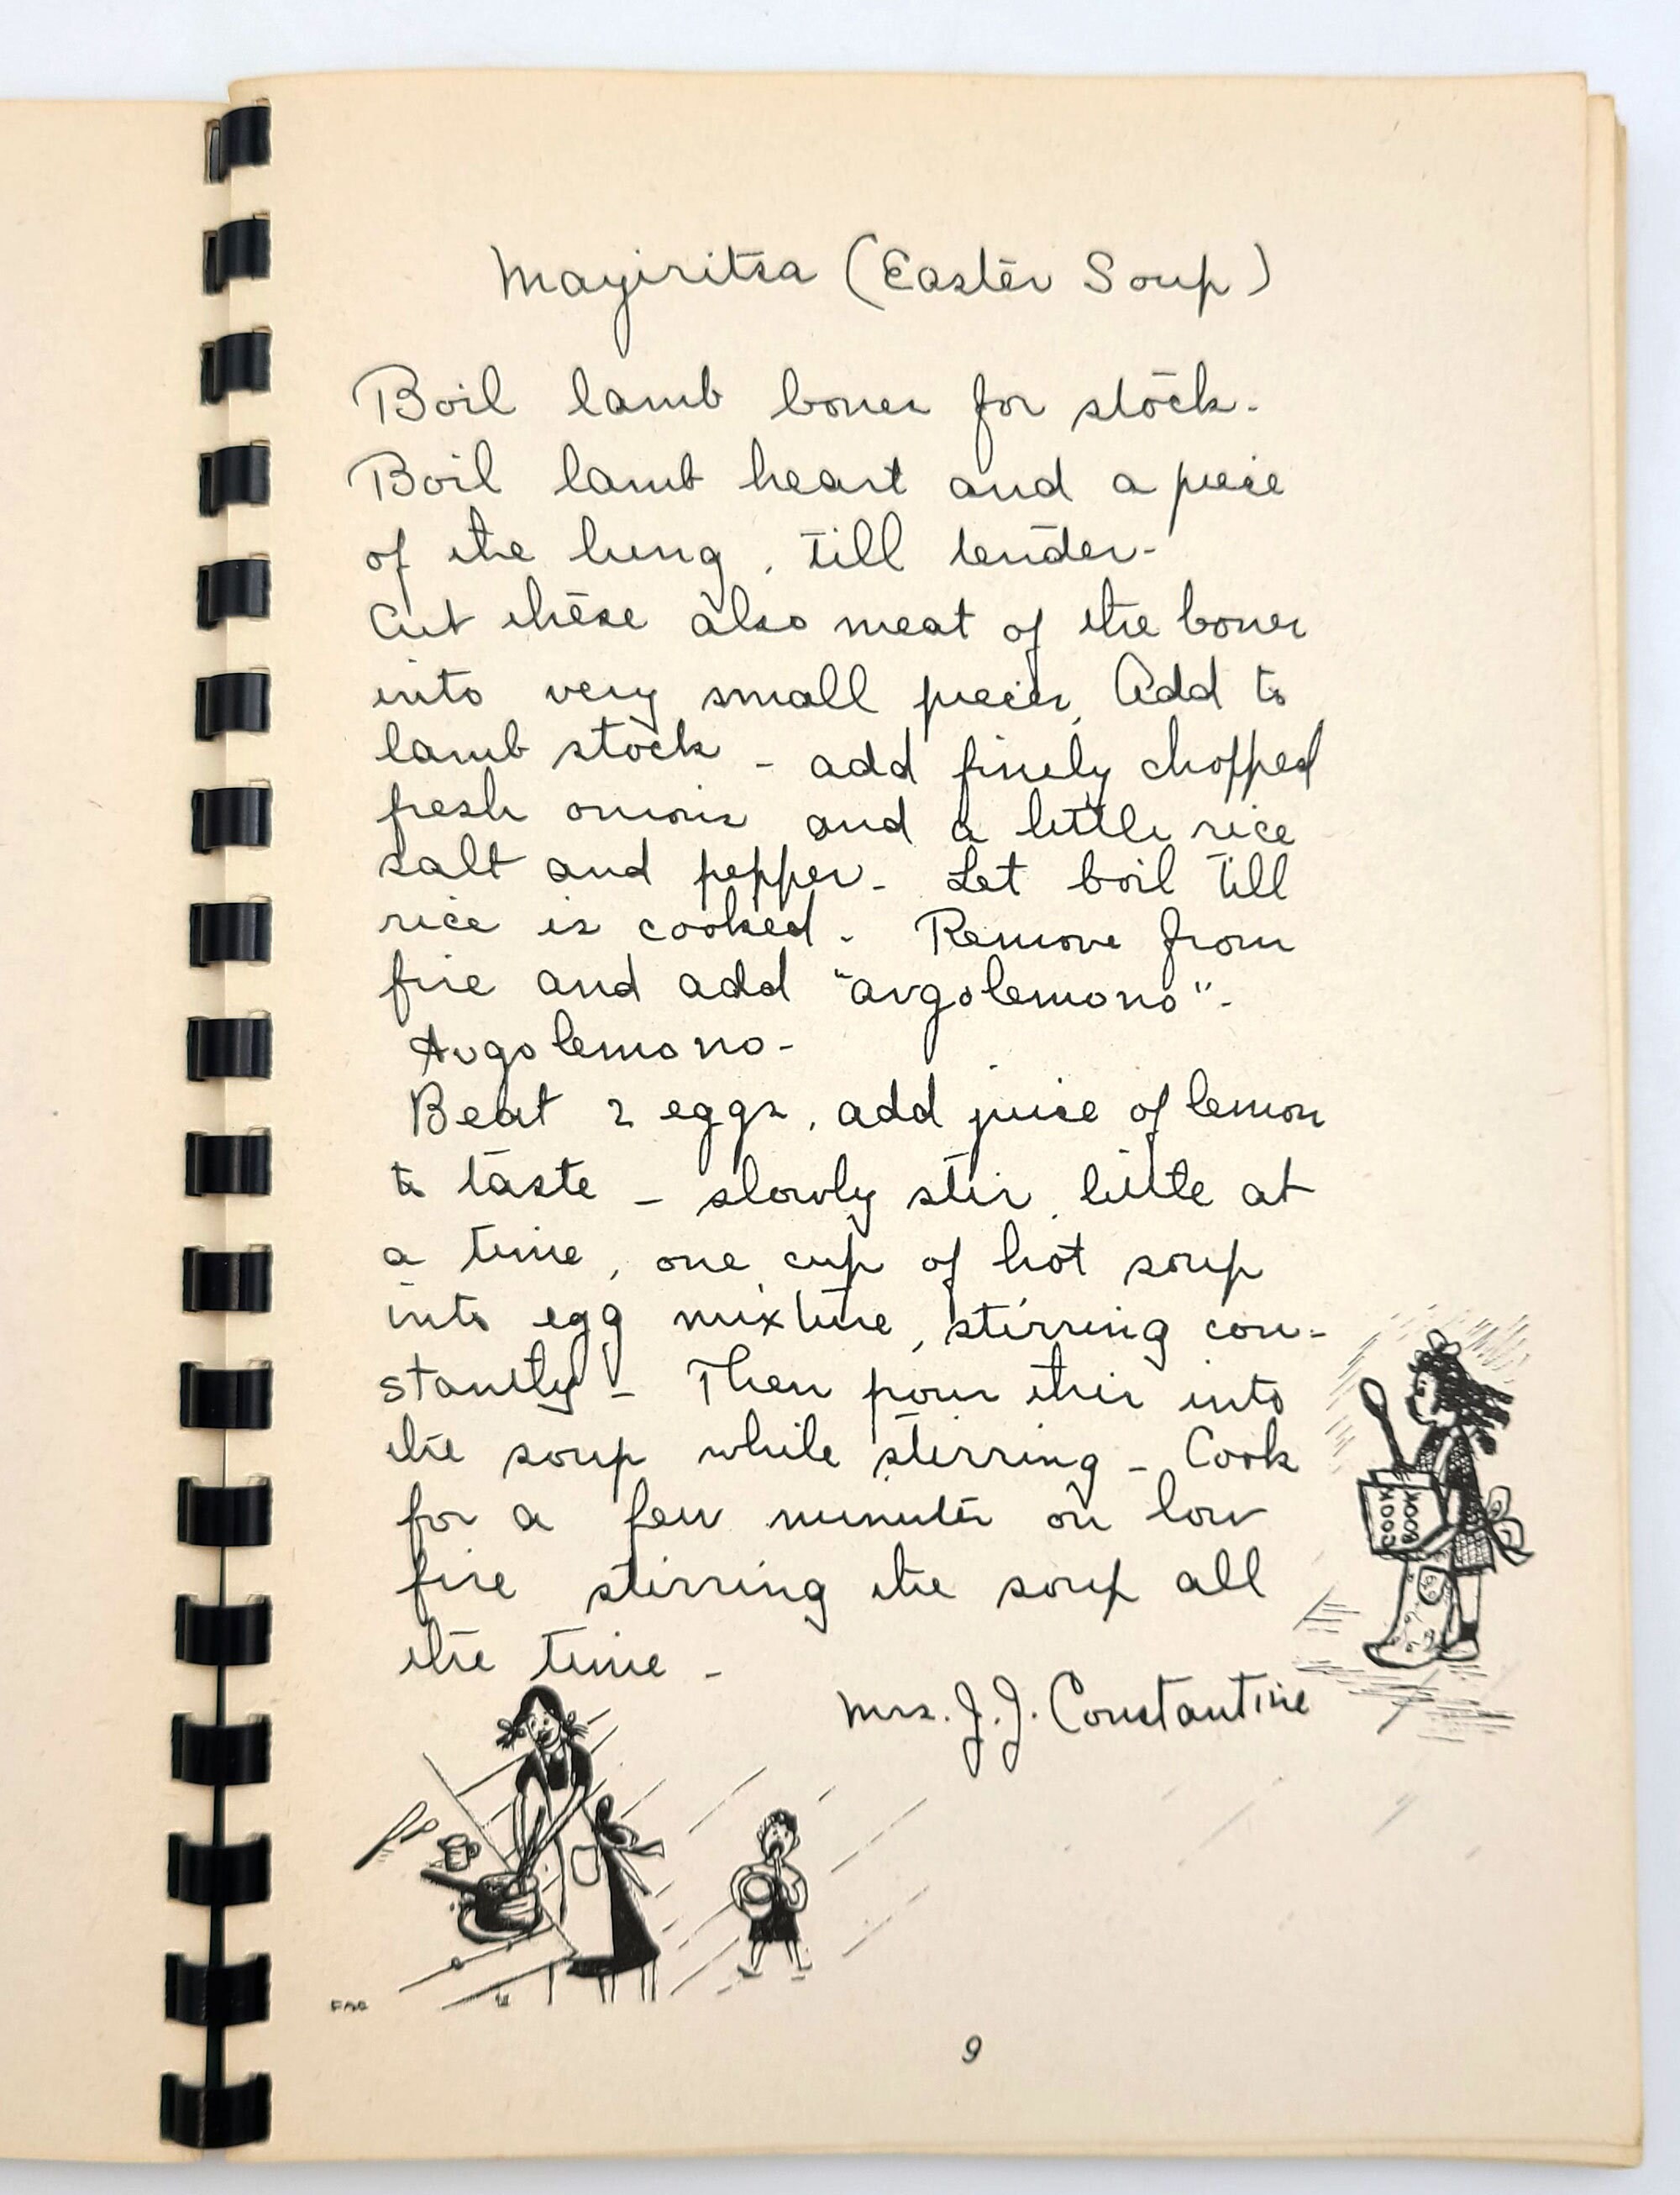 Mayiritsa (Easter Soup)
Boil lamb bones for stock.
Boil lamb heart and a piece
of the lung, till tender-
Cut these also meat of the bones
into very small pieces, Add to
lamb stock - add finely chopped
fresh onions and a little rice
salt and pepper- Let boil till
rice is cooked. Remove from
fire and add "avgolemono"-
Avgolemono-
Beat 2 eggs, add juice of lemon
to taste - slowly stir, little at
a time, one cup of hot soup
into egg mixture, stirring con-
stantly - Then pour this into
the soup while stirring - Cook
for a few minutes on low
fire stirring the soup all
the time -
Mrs. J. J. Constantine
COOK
BOOK
9